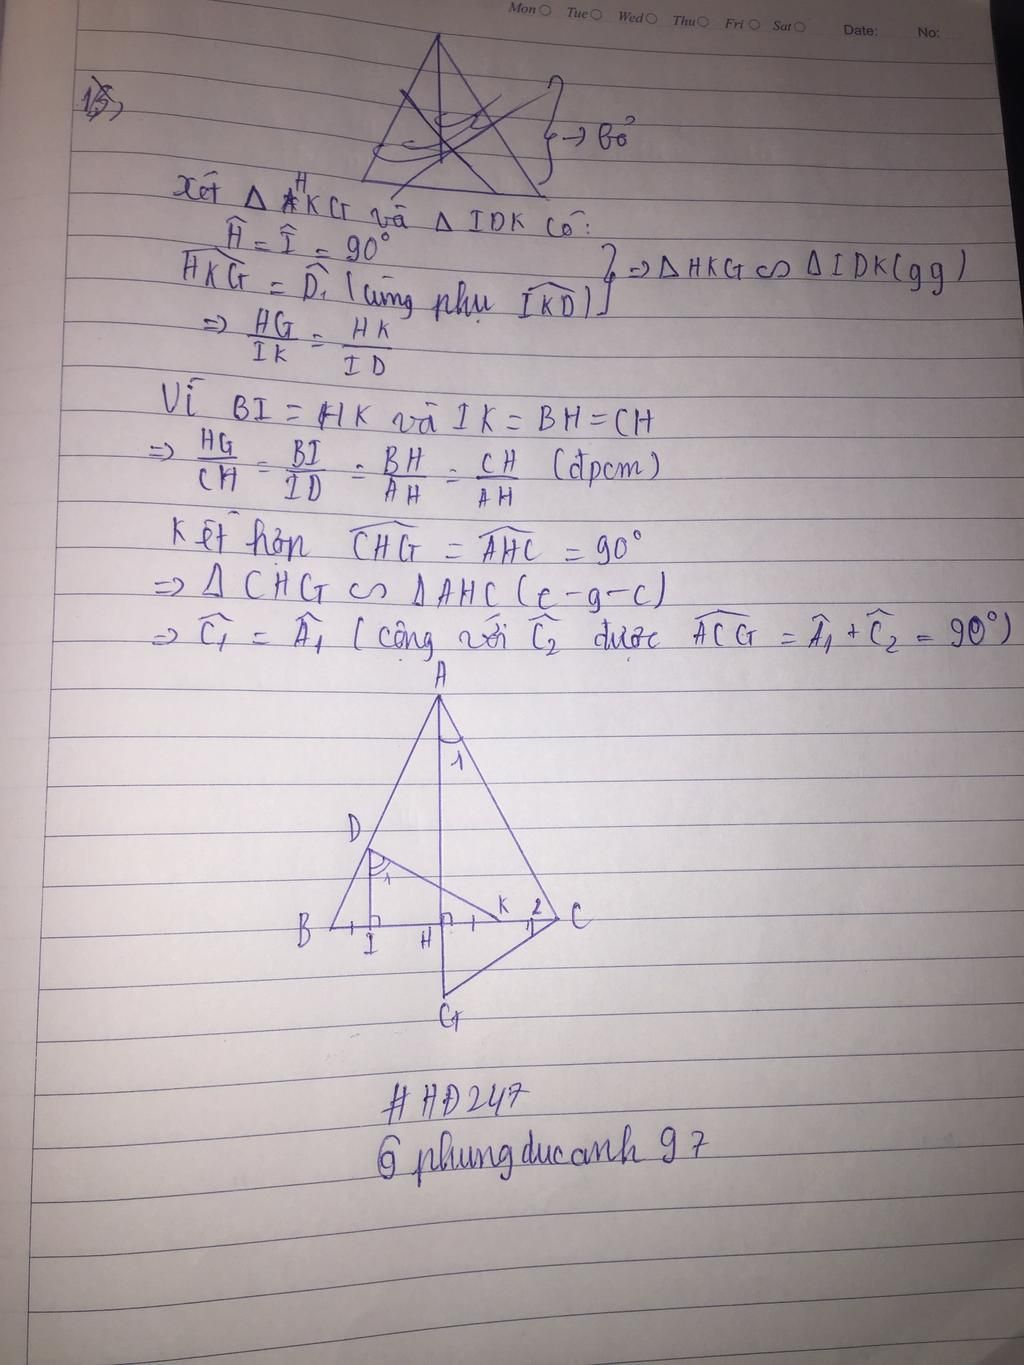 Mon Tue Wed Thu Fri Sat Date: No:
15,
→ Bỏ
Xét Δ HKG và Δ IDK có:
Ĥ = Î = 90°
HKG = D̂₁ (cùng phụ IKD) } => ΔHKG ∽ ΔIDK (gg)
=> HG/IK = HK/ID
Vì BI = HK và IK = BH = CH
=> HG/CH = BI/ID = BH/AH = CH/AH (đpcm)
Kết hợp CHG = AHC = 90°
=> Δ CHG ∽ ΔAHC (c-g-c)
=> Ĉ₁ = Â₁ (cộng với Ĉ₂ được ACG = Â₁ + Ĉ₂ = 90°)
A
1
D
1
B I H K 2 C
1
G
# HĐ247
@ phungducanh 97